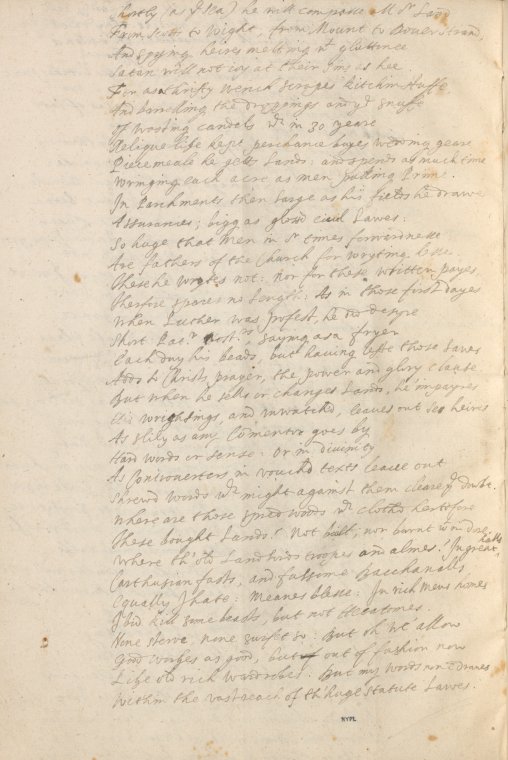 shortly (as ye sea) he will compasse all ye Land
From Scotts to Wight, from Mount to Dover Strand,
And spying heires melting wt gluttonee
Satan will not joy at their sins as hee.
For as a thrifty wench scrapes kitchin stuffe
And barrelling the droppings and ye snuffe
Of wasting candels wch in 30 yeare
Relique-like kept perchance buyes wedding geare
Piecemeale he getts Lands: and spends as much time
Wringing each acre as men pulling Prime.
In Parchments then large as his fields he drawes
Assurances; bigg as glosd civil Lawes:
So huge that Men in or times forwardness
Are fathers of the Church for wryting lesse.
These he wrytes not: nor for these written payes
Therfore spares no Length: As in those first dayes
When Luther was profest, he did desyre
Short Pater nosters, saying as a fryer
Each day his beads, but having left those Laws
Adds to Christs prayer, the power and glory clause
But when he sells or changes Lands, he impayres
His wrightings, and unwatchd, leaves out ses heires
As slily as any Comentor goes by
Hard words or sense: Or in divinity
As Controverters in vouchd texts leave out
Shrewd words wch might against them cleare ye doubt.
Where are those spred woods wch clothd hertofore
These bought Lands? Not built, nor burnt wthin dore.
Where th' old Landlords troopes and almes? In great halls
Carthusian fasts, and fulsome Bacchanalls
Equally I hate: Meanes blesse: In rich Mens homes
I bid kill some beasts, but not Hecatomes.
None sterve, none surfet so: But oh we allow
Good workes as good, but out of fashion now
Like old rich wardrobes. But my words none drawes
Within the vast reach of th' huge Statute Lawes.
NYPL